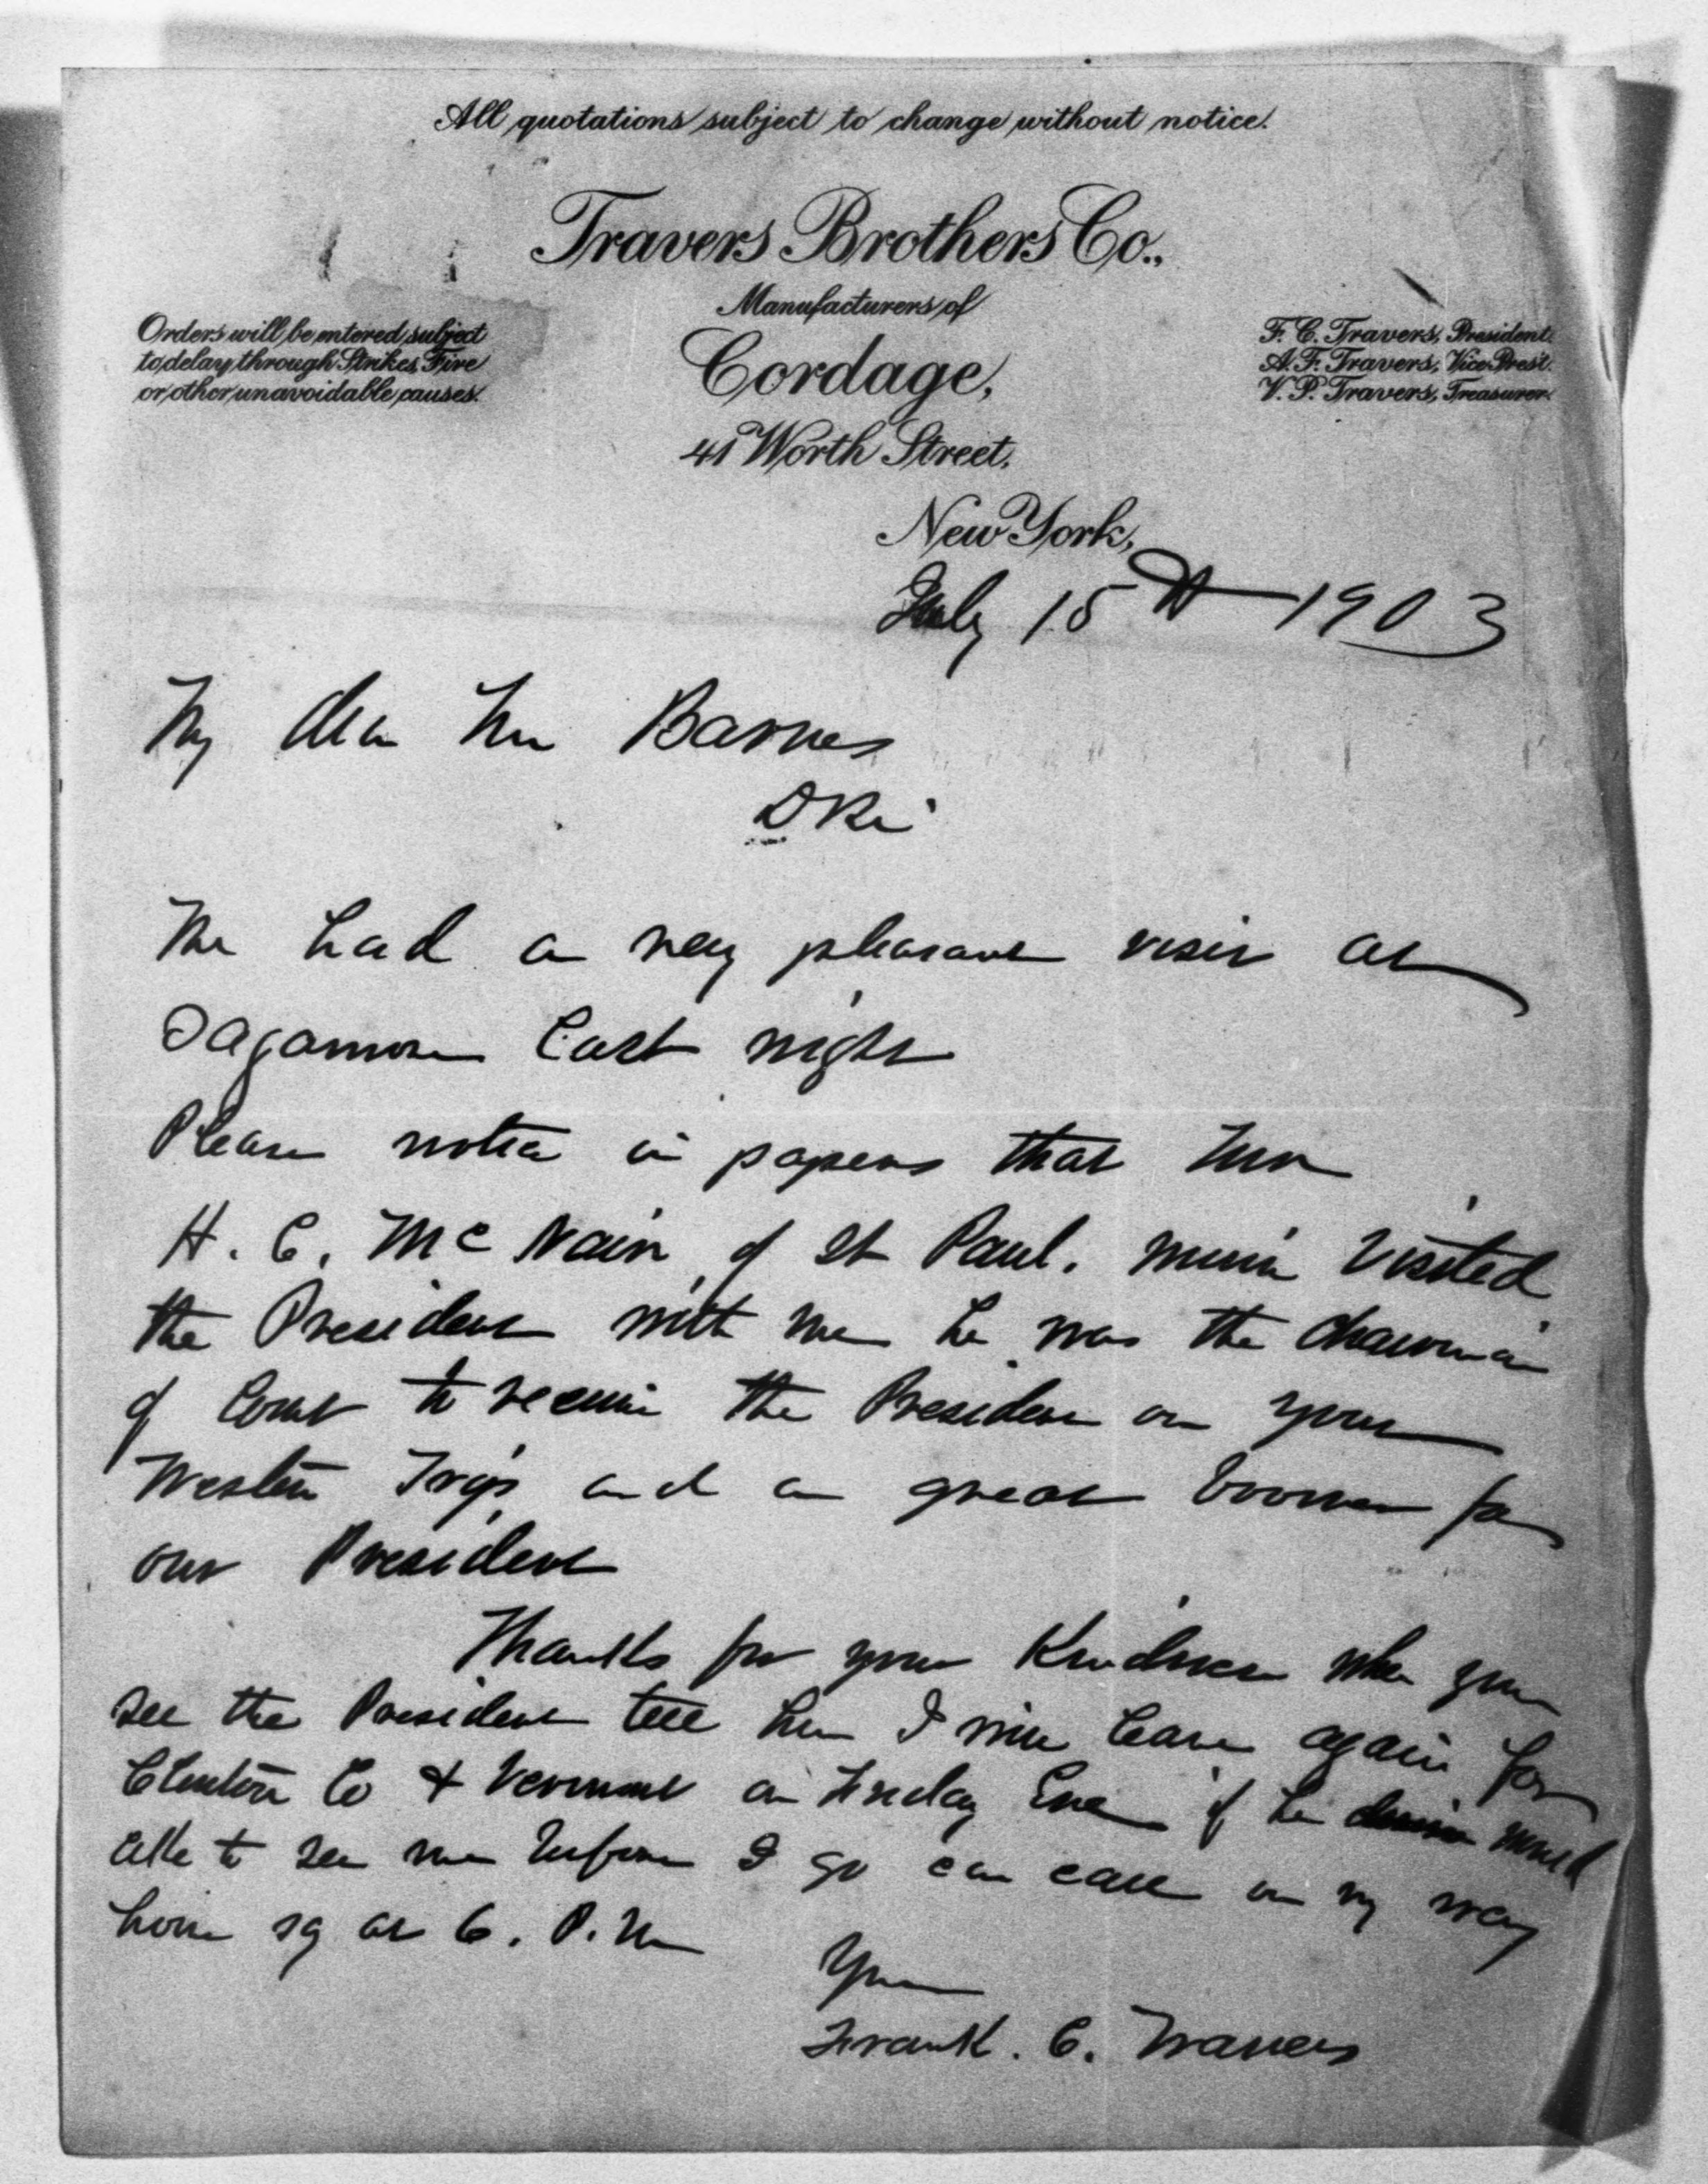 All quotations subject to change without notice.
Travers Brothers Co.,
Manufacturers of
Cordage,
41 Worth Street,
Orders will be entered subject
to delay through Strikes, Fire
or other unavoidable causes.
F. C. Travers, President.
A. F. Travers, Vice Prest.
V. P. Travers, Treasurer.
New York,
July 15th 1903
My dear Mr Barnes
We had a very pleasant visit at
Sagamore last night
Please notice in papers that Mr
H. C. McNair of St Paul. Minn visited
the President with me he was the chairman
of Comt to receive the President on your
Western Trip and a great boomer for
our President
Thanks for your Kindness when you
see the President tell him I will leave again for
Clinton Co & Vermont on Friday Eve if he would
like to see me before I go can call on my way
home at 6. P.M
Yours
Frank. C. Travers